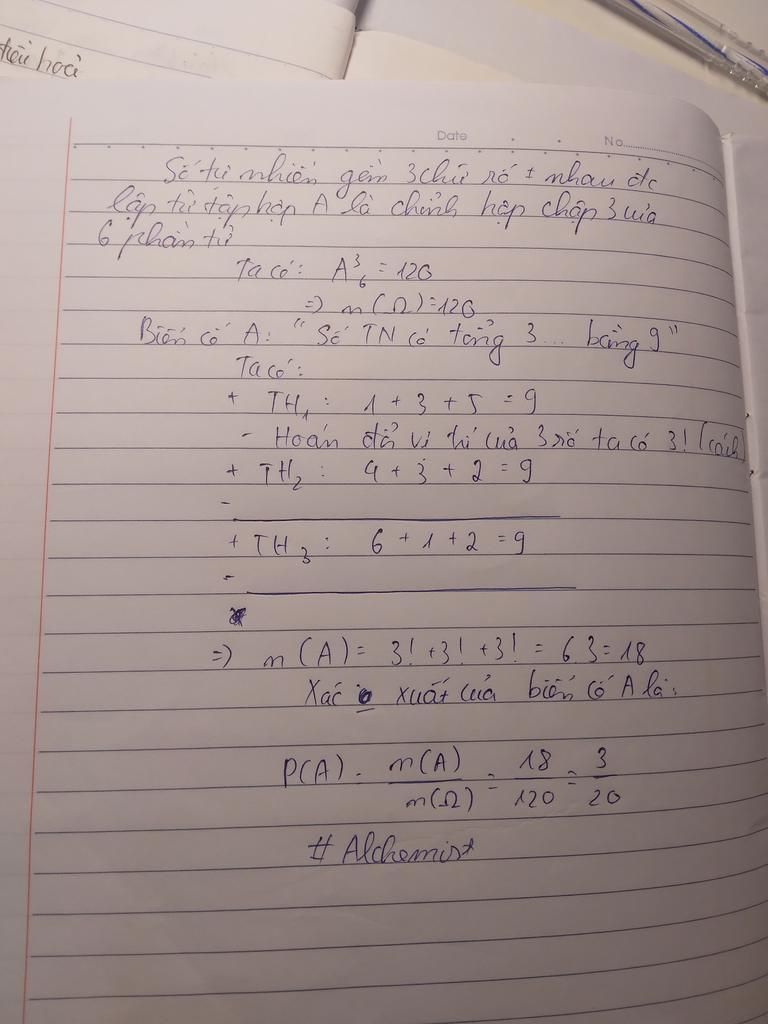 tiêu hoá
Date
No.
Số tự nhiên gồm 3 chữ số ≠ nhau đc
lập từ tập hợp A là chỉnh hợp chập 3 của
6 phần tử
Ta có: A³₆ = 120
=> n(Ω) = 120
Biến cố A: "Số TN có tổng 3... bằng 9"
Ta có:
+ TH₁: 1 + 3 + 5 = 9
- Hoán đổi vị trí của 3 số ta có 3! (cách)
+ TH₂: 4 + 3 + 2 = 9
-
+ TH₃: 6 + 1 + 2 = 9
-
=> n(A) = 3! + 3! + 3! = 6.3 = 18
Xác xuất của biến cố A là:
P(A) = n(A)/n(Ω) = 18/120 = 3/20
# Alchemist